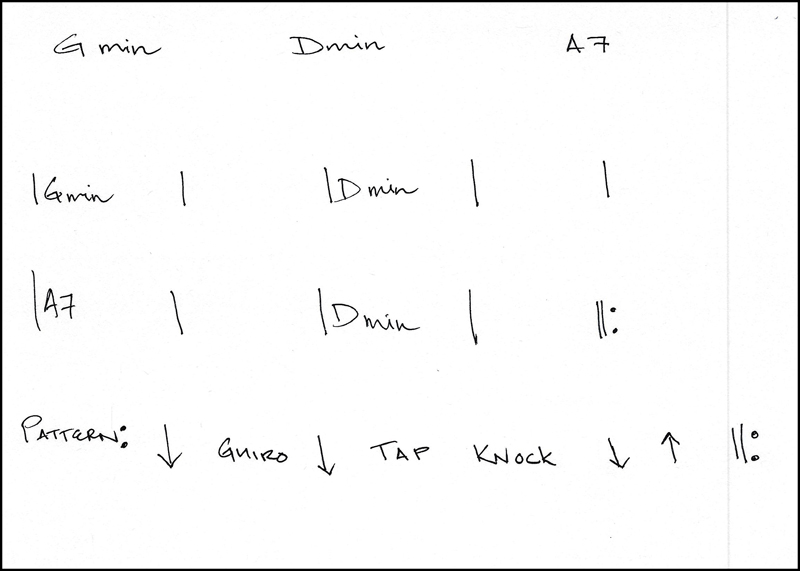 G min Dmin A7
|Gmin | |Dmin | |
|A7 | |Dmin | ||:
PATTERN: ↓ GUIRO ↓ TAP KNOCK ↓ ↑ ||: